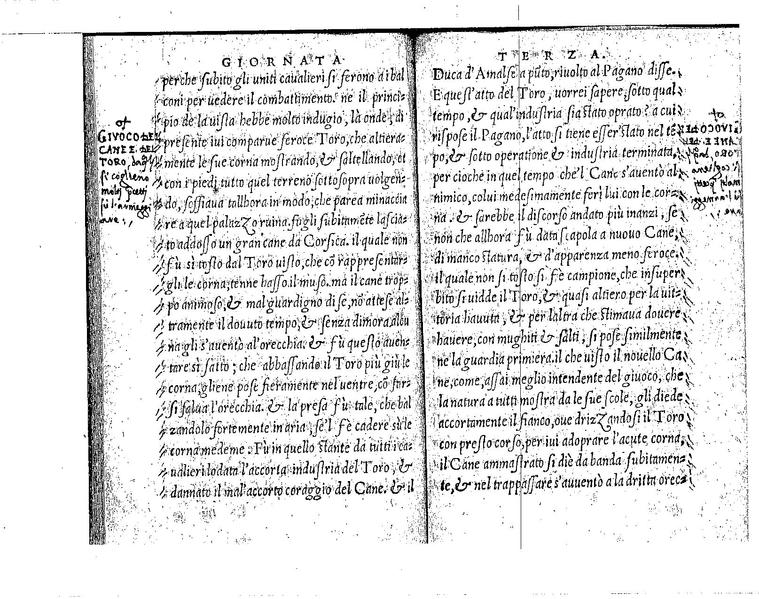 GIORNATA
perche subito gli uniti cavalieri si ferono a i bal
coni per uedere il combattimento. ne il princi-
pio de la uista hebbe molto indugio, là onde, di
presente iui comparue feroce Toro, che altiera-
mente le sue corna mostrando, & saltellando, et
con i piedi tutto quel terreno sottosopra uolgen-
do, soffiaua tallhora in modo, che parea minaccia
re a quel palazzo ruina. fugli subitamēte lascia-
to addosso un gran cane da Corsica. il quale non
fu si tosto dal Toro uisto, che cō rappresentar-
gli le corna, tenne basso il muso. ma il cane trop-
po animoso, & mal guardigno di se, nō attese al-
tramente il douuto tempo, & senza dimora
na gli s'auentò al'orecchia. & fu questo auen-
tare si fatto; che abbassando il Toro più giù le
corna, gliene pose fieramente nel uentre, cō for-
si salua l'orecchia. & la presa fu tale, che bal
zandolo fortemente in aria, se'l fe cadere sù le
corna medeme. Fù in quello stante da tutti i ca-
ualieri lodata l'accorta industria del Toro, &
dannato il mal'accorto coraggio del Cane. & il
GIVOCO DEL
CANE E DEL
TORO,
si cogliono
molti
TERZA.
Duca d'Amalfe a pūto, riuolto al Pagano disse.
E quest'atto del Toro, uorrei sapere, sotto qual
tempo, & qual'industria sia stato oprato? a cui
rispose il Pagano, l'atto si tiene esser stato nel tē-
po, & sotto operatione & industria terminata,
per cioche in quel tempo che'l Cane s'auentò al
nimico, colui medesimamente ferì lui con le cor-
na. & sarebbe il discorso andato più inanzi, se
non che allhora fù data scapola a nuouo Cane,
di manco statura, & d'apparenza meno feroce.
il quale non si tosto si fe campione, che insuper
bito si uidde il Toro, & quasi altiero per la uit-
toria hauuta, & per laltra che stimaua douere
hauere, con mughiti & salti, si pose similmente
ne la guardia primiera. il che uisto il nouello Ca
ne, come, assai meglio intendente del giuoco, che
la natura a tutti mostra da le sue scole, gli diede
accortamente il fianco, oue drizzandosi il Toro
con presto corso, per iui adoprare l'acute corna,
il Cane ammastrato si diè da banda subitamen-
te, & nel trappassare s'auuentò a la dritta orec-